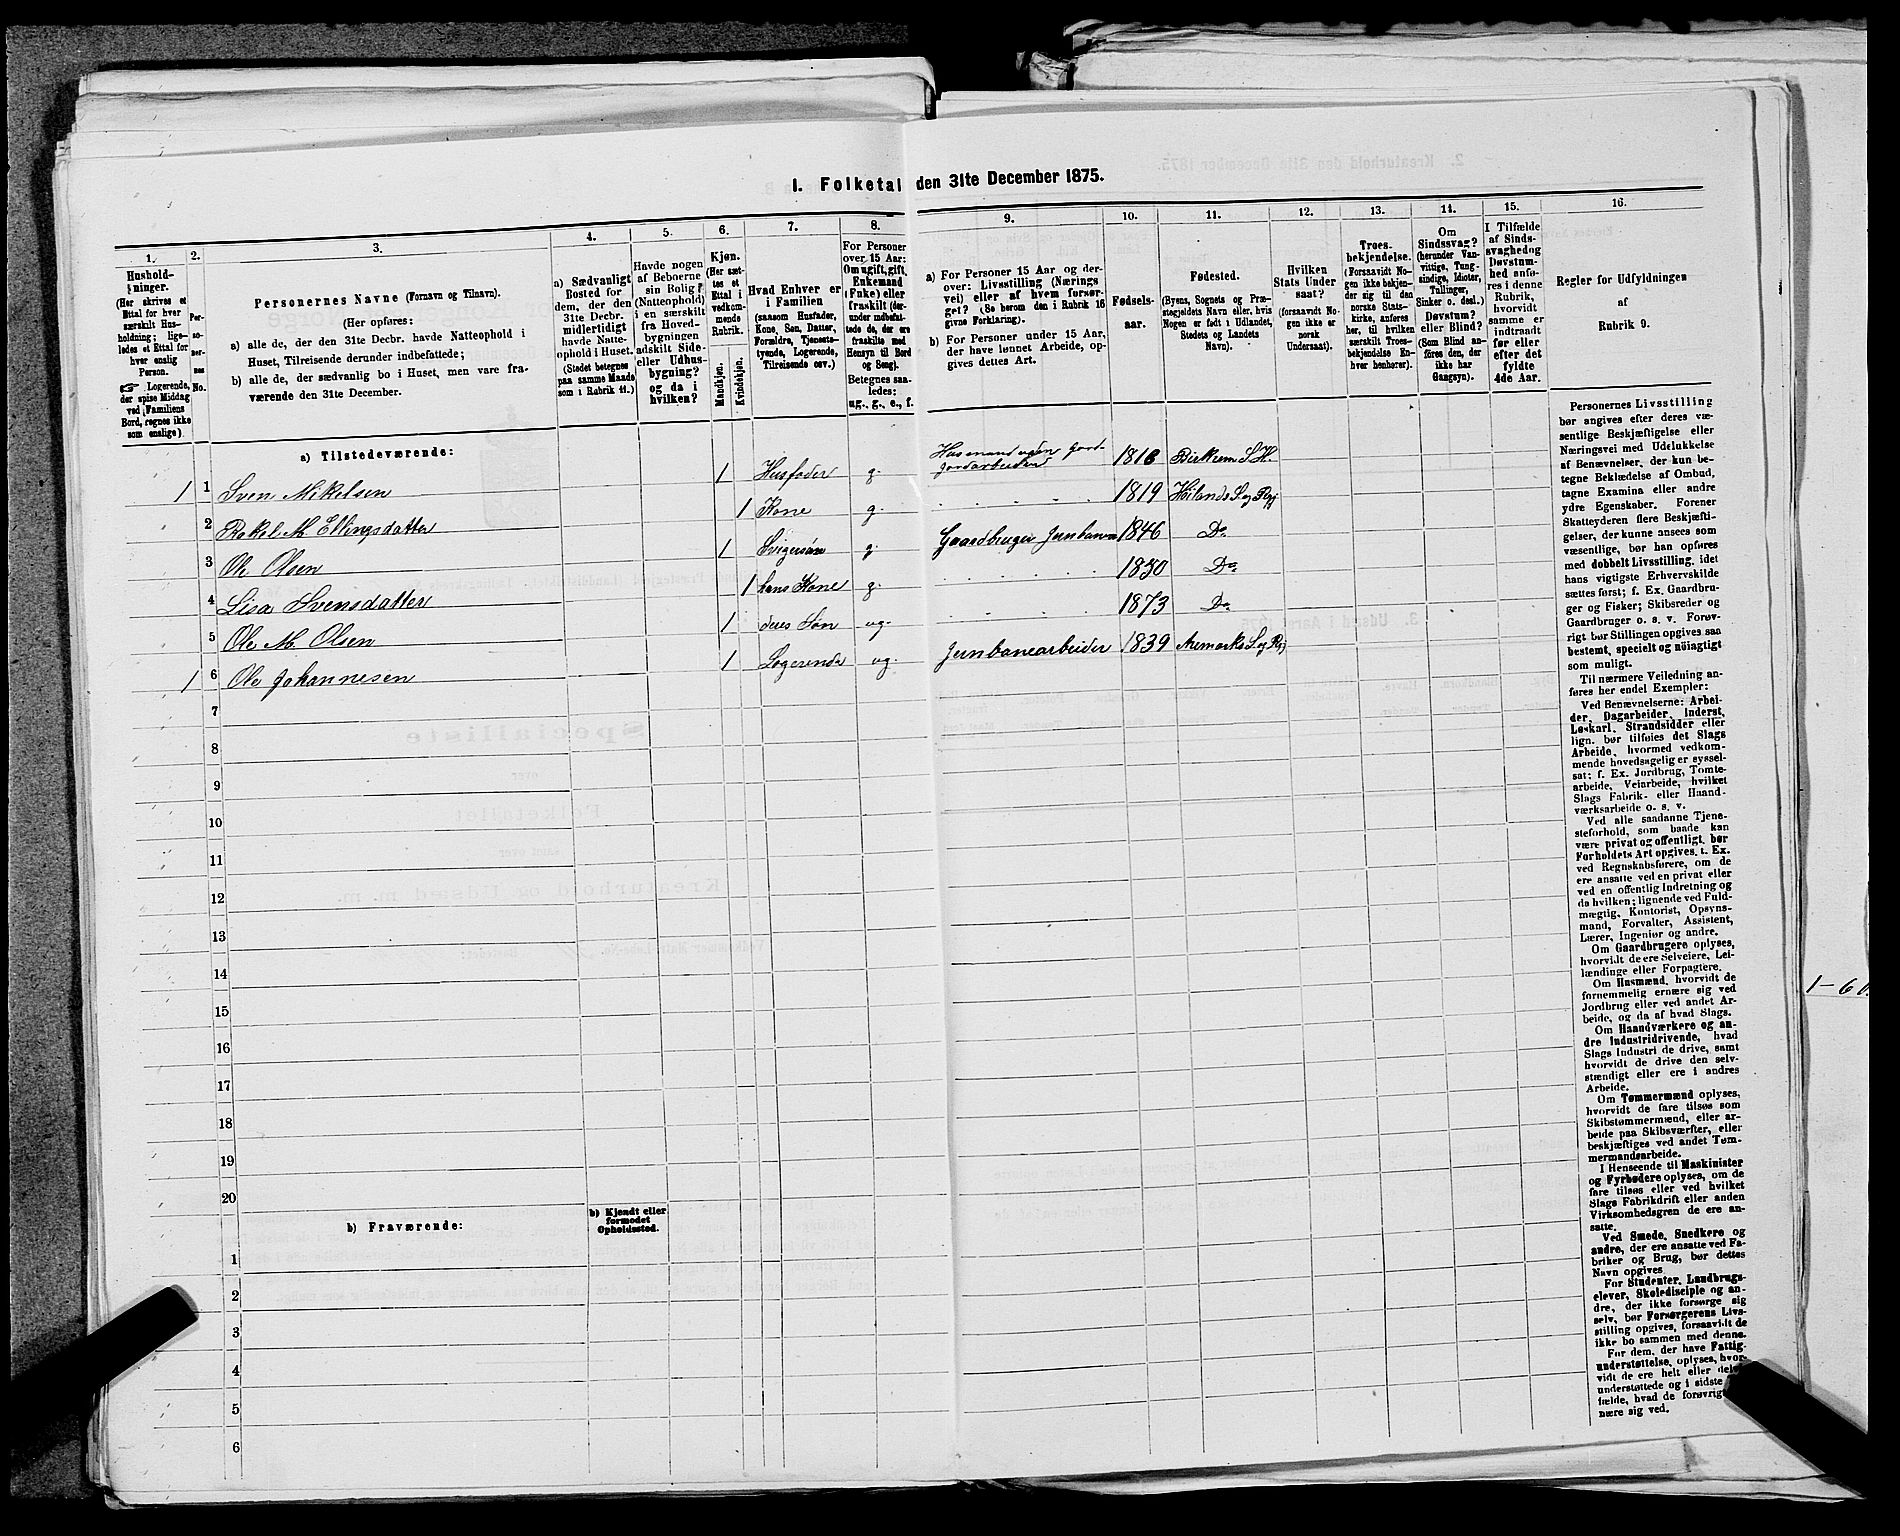 I. Folketal den 31te December 1875.
1.
Hushold-
ninger.
(Her skrives et
Ettal for hver
særskilt Hus-
holdning; lige-
ledes et Ettal for
hver enslig
Person.
☞ Logerende,
der spise Middag
ved Familiens
Bord, regnes ikke
som enslige).
2.
Per-
so-
ner-
nes
No.
3.
Personernes Navne (Fornavn og Tilnavn).
(Her opføres:
a) alle de, der den 31te Decbr. havde Natteophold i
Huset, Tilreisende derunder indbefattede;
b) alle de, der sædvanlig bo i Huset, men vare fra-
værende den 31te December.
4.
a) Sædvanligt
Bosted for
dem, der den
31te Decbr.
midlertidigt
havde Natte-
ophold i Huset.
(Stedet betegnes
paa samme Maade
som i Rubrik 11.)
5.
Havde nogen
af Beboerne
sin Bolig
(Natteophold)
i en særskilt
fra Hoved-
bygningen
adskilt Side-
eller Udhus-
bygning?
og da i
hvilken?
6.
Kjøn.
(Her sæt-
tes et
Ettal i
vedkom-
mende
Rubrik.
Mandkjøn.
Kvindekjøn.
7.
Hvad Enhver er
i Familien
(saasom Husfader,
Kone, Søn, Datter,
Forældre, Tjenestе-
tyende, Logerende,
Tilreisende osv.)
8.
For Personer
over 15 Aar:
Om ugift, gift,
Enkemand
(Enke) eller
fraskilt (der-
under indbefat-
tede de, der ere
fraskilte med
Hensyn til Bord
og Seng).
Betegnes saa-
ledes:
ug., g., e., f.
9.
a) For Personer 15 Aar og der-
over: Livsstilling (Nærings-
vei) eller af hvem forsør-
get? (Se herom den i Rubrik 16
givne Forklaring).
b) For Personer under 15 Aar,
der have lønnet Arbeide, op-
gives dettes Art.
10.
Fødsels-
aar.
11.
Fødested.
(Byens, Sognets og Præ-
stegjeldets Navn eller, hvis
Nogen er født i Udlandet,
Stedets og Landets
Navn).
12.
Hvilken
Stats Under
saat?
(forsaavidt No-
gen ikke er
norsk
Undersaat).
13.
Troes-
bekjendelse.
(Forsaavidt No-
gen ikke bekjen-
der sig til den
norske Stats-
kirke, anføres
her, til hvilken
særskilt Troes-
bekjendelse En-
hver henhører).
14.
Om
Sindssvag?
(herunder Van-
vittige, Tung-
sindige, Idioter,
Tullinger,
Sinker o. desl.)
Døvstum?
eller Blind?
(Som Blind an-
føres den, der
ikke har
Gangsyn).
15.
I Tilfælde
af Sinds-
svaghed og
Døvstum-
hed anfø-
res i denne
Rubrik,
hvorvidt
samme er
indtraadt
før eller
efter det
fyldte
4de Aar.
16.
Regler for Udfyldningen
af
Rubrik 9.
a) Tilstedeværende:
1 1 Sven Mikelsen 1 Husfader g. Husmand uden Jord Jordarbeider 1816 Birkrem S.H.
2 Rakel M. Ellingsdatter 1 Kone g. 1819 Høilands S. og Pgj
3 Ole Olsen 1 Svigersøn g. Gaardbruger Jernbanea 1846 Do
4 Lisa Svensdatter 1 hans Kone g. 1850 Do
5 Ole M. Olsen 1 deres Søn ug. 1873 Do
1 6 Ole Johannesen 1 Logerende ug. Jernbanearbeider 1839 Aremarks S. og Pgj
7
8
9
10
11
12
13
14
15
16
17
18
19
20
b) Fraværende:
b) Kjendt eller
formodet
Opholdssted.
1
2
3
4
5
6
Personernes Livsstilling
bør angives efter deres væ-
sentlige Beskjæftigelse eller
Næringsvei med Udelukkelse
af Benævnelser, der kun be-
tegne Beklædelse af Ombud,
tagne Examina eller andre
ydre Egenskaber. Forener
Skatteyderen flere Beskjæfti-
gelser, der kunne ansees som
væsentlige, bør han opføres
med dobbelt Livsstilling, idet
hans vigtigste Erhvervskilde
sættes først; f. Ex. Gaardbru-
ger og Fisker; Skibsreder og
Gaardbruger o. s. v. Forøv-
rigt bør Stillingen opgives saa
bestemt, specielt og nøiagtigt
som muligt.
Til nærmere Veiledning an-
føres her endel Exempler:
Ved Benævnelserne: Arbei-
der, Dagarbeider, Inderst,
Løskarl, Strandsidder eller
lign. bør tilføies det Slags
Arbeide, hvormed vedkom-
mende hovedsagelig er syssel-
sat; f. Ex. Jordbrug, Tomte-
arbeide, Veiarbeide, hvilket
Slags Fabrik- eller Haand-
værksarbeide o. s. v.
Ved alle saadanne Tjene-
steforhold, som baade kan
være privat og offentligt, bør
Forholdets Art opgives, f. Ex.
ved Regnskabsførere, om de
ere ansatte ved en privat eller
ved en offentlig Indretning og
da hvilken; lignende ved Fuld-
mægtig, Kontorist, Opsyns-
mand, Forvalter, Assistent,
Lærer, Ingeniør og andre.
Om Gaardbrugere oplyses,
hvorvidt de ere Selveiere, Lei-
lændinge eller Forpagtere.
Om Husmænd, hvorvidt de
fornemmelig ernære sig ved
Jordbrug eller ved andet Ar-
beide, og da af hvad Slags.
Om Haandværkere og an-
dre Industridrivende, hvad
Slags Industri de drive, samt
hvorvidt de drive den selv-
stændigt eller ere i andres
Arbeide.
Om Tømmermænd oplyses,
hvorvidt de fare tilsøs som
Skibstømmermænd, eller ar-
beide paa Skibsværfter, eller
beskjæftiges ved andet Tøm-
mermandsarbeide.
I Henseende til Maskinister
og Fyrbødere oplyses, om de
fare tilsøs eller ved hvilket
Slags Fabrikdrift eller anden
Virksomhedsgren de ere an-
satte.
Ved Smede, Snedkere og
andre, der ere ansatte ved Fa-
briker og Brug, bør dettes
Navn opgives.
For Studenter, Landbrugs-
elever, Skoledisciple og an-
dre, der ikke forsørge sig
selv, bør Forsørgerens Livs-
stilling opgives, forsaavidt de
ikke bo sammen med denne.
For dem, der have Fattig-
understøttelse, oplyses, hvor-
vidt de ere helt eller delvis
understøttede og i sidste
fælde, hvad de forøvrig
nære sig ved.
1-6